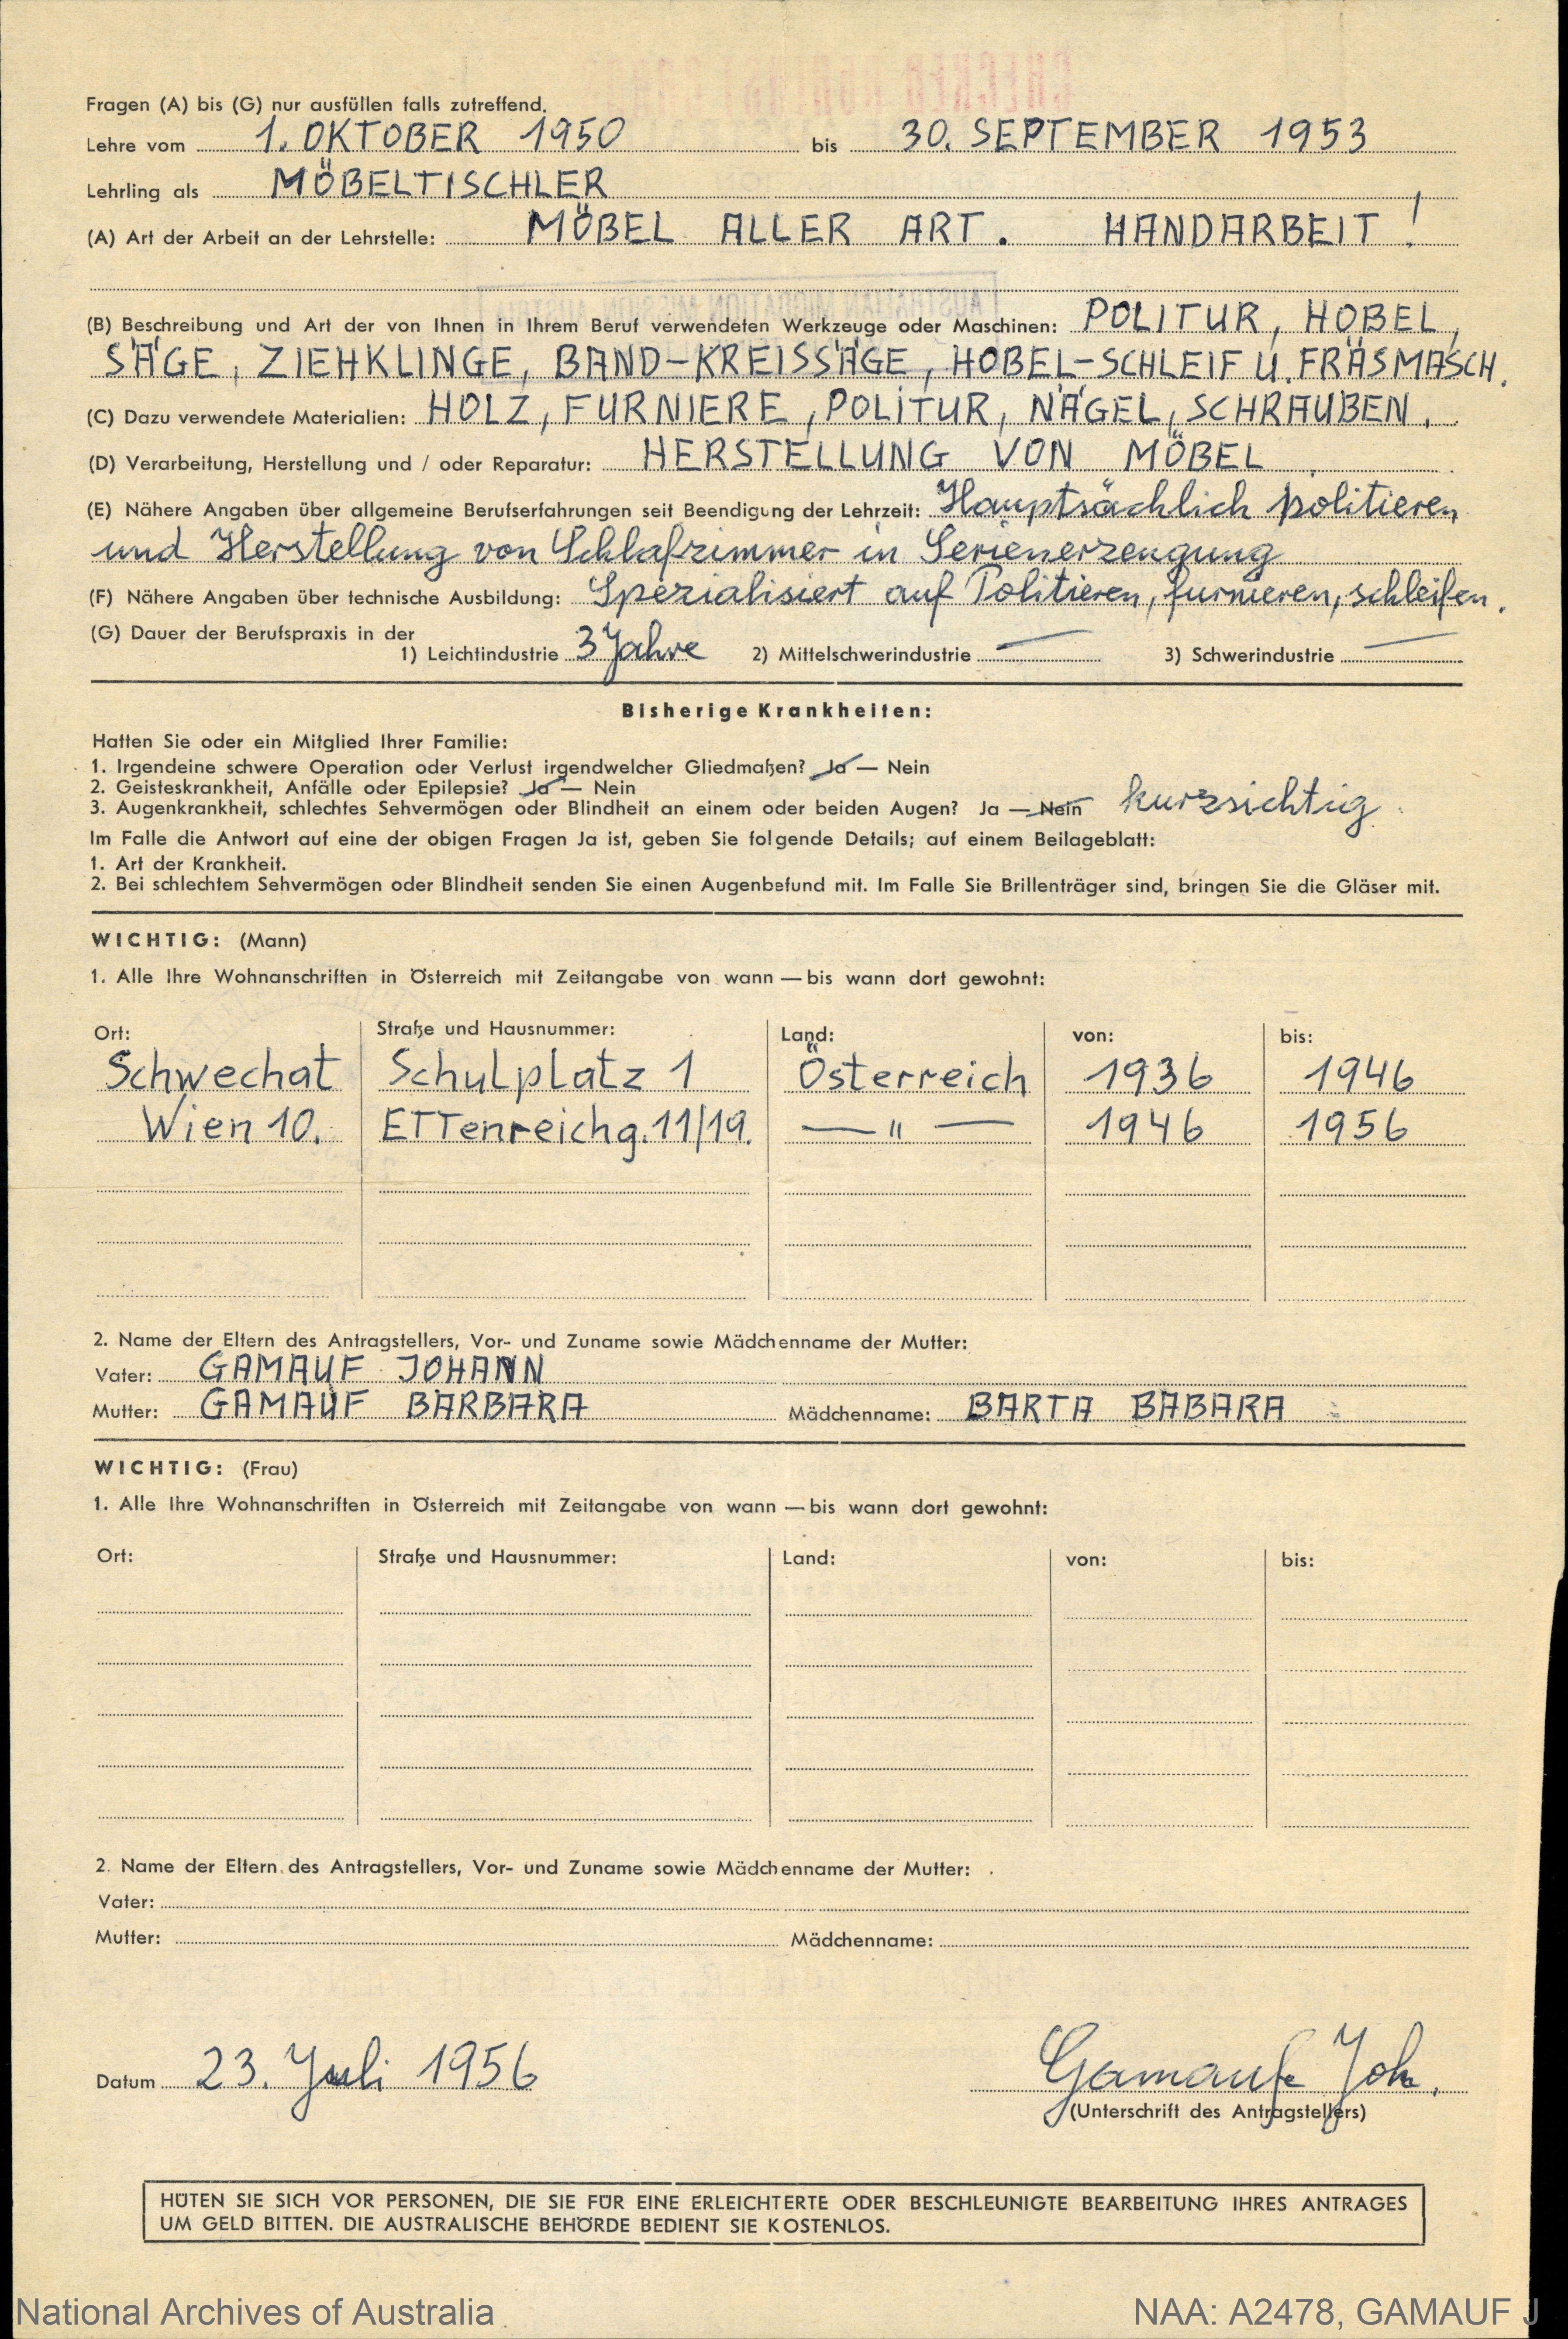 Fragen (A) bis (G) nur ausfüllen falls zutreffend.
Lehre vom 1. OKTOBER 1950 bis 30. SEPTEMBER 1953
Lehrling als MÖBELTISCHLER
(A) Art der Arbeit an der Lehrstelle: MÖBEL ALLER ART. HANDARBEIT!
(B) Beschreibung und Art der von Ihnen in Ihrem Beruf verwendeten Werkzeuge oder Maschinen: POLITUR, HOBEL,
SÄGE, ZIEHKLINGE, BAND-KREISSÄGE, HOBEL-SCHLEIF U. FRÄSMASCH.
(C) Dazu verwendete Materialien: HOLZ, FURNIERE, POLITUR, NÄGEL, SCHRAUBEN.
(D) Verarbeitung, Herstellung und / oder Reparatur: HERSTELLUNG VON MÖBEL
(E) Nähere Angaben über allgemeine Berufserfahrungen seit Beendigung der Lehrzeit: Hauptsächlich politieren
und Herstellung von Schlafzimmer in Serienerzeugung
(F) Nähere Angaben über technische Ausbildung: Spezialisiert auf Politieren, furnieren, schleifen.
(G) Dauer der Berufspraxis in der
1) Leichtindustrie 3 Jahre 2) Mittelschwerindustrie — 3) Schwerindustrie —
Bisherige Krankheiten:
Hatten Sie oder ein Mitglied Ihrer Familie:
1. Irgendeine schwere Operation oder Verlust irgendwelcher Gliedmaßen? Ja — Nein
2. Geisteskrankheit, Anfälle oder Epilepsie? Ja — Nein
3. Augenkrankheit, schlechtes Sehvermögen oder Blindheit an einem oder beiden Augen? Ja — Nein kurzsichtig
Im Falle die Antwort auf eine der obigen Fragen Ja ist, geben Sie folgende Details; auf einem Beilageblatt:
1. Art der Krankheit.
2. Bei schlechtem Sehvermögen oder Blindheit senden Sie einen Augenbefund mit. Im Falle Sie Brillenträger sind, bringen Sie die Gläser mit.
WICHTIG: (Mann)
1. Alle Ihre Wohnanschriften in Österreich mit Zeitangabe von wann — bis wann dort gewohnt:
Ort: Straße und Hausnummer: Land: von: bis:
Schwechat Schulplatz 1 Österreich 1936 1946
Wien 10. ETTenreichg. 11/19. — " — 1946 1956
2. Name der Eltern des Antragstellers, Vor- und Zuname sowie Mädchenname der Mutter:
Vater: GAMAUF JOHANN
Mutter: GAMAUF BARBARA Mädchenname: BARTA BABARA
WICHTIG: (Frau)
1. Alle Ihre Wohnanschriften in Österreich mit Zeitangabe von wann — bis wann dort gewohnt:
Ort: Straße und Hausnummer: Land: von: bis:
2. Name der Eltern des Antragstellers, Vor- und Zuname sowie Mädchenname der Mutter:
Vater:
Mutter: Mädchenname:
Datum 23. Juli 1956 Gamauf Joh.
(Unterschrift des Antragstellers)
HÜTEN SIE SICH VOR PERSONEN, DIE SIE FÜR EINE ERLEICHTERTE ODER BESCHLEUNIGTE BEARBEITUNG IHRES ANTRAGES
UM GELD BITTEN. DIE AUSTRALISCHE BEHÖRDE BEDIENT SIE KOSTENLOS.
National Archives of Australia NAA: A2478, GAMAUF J